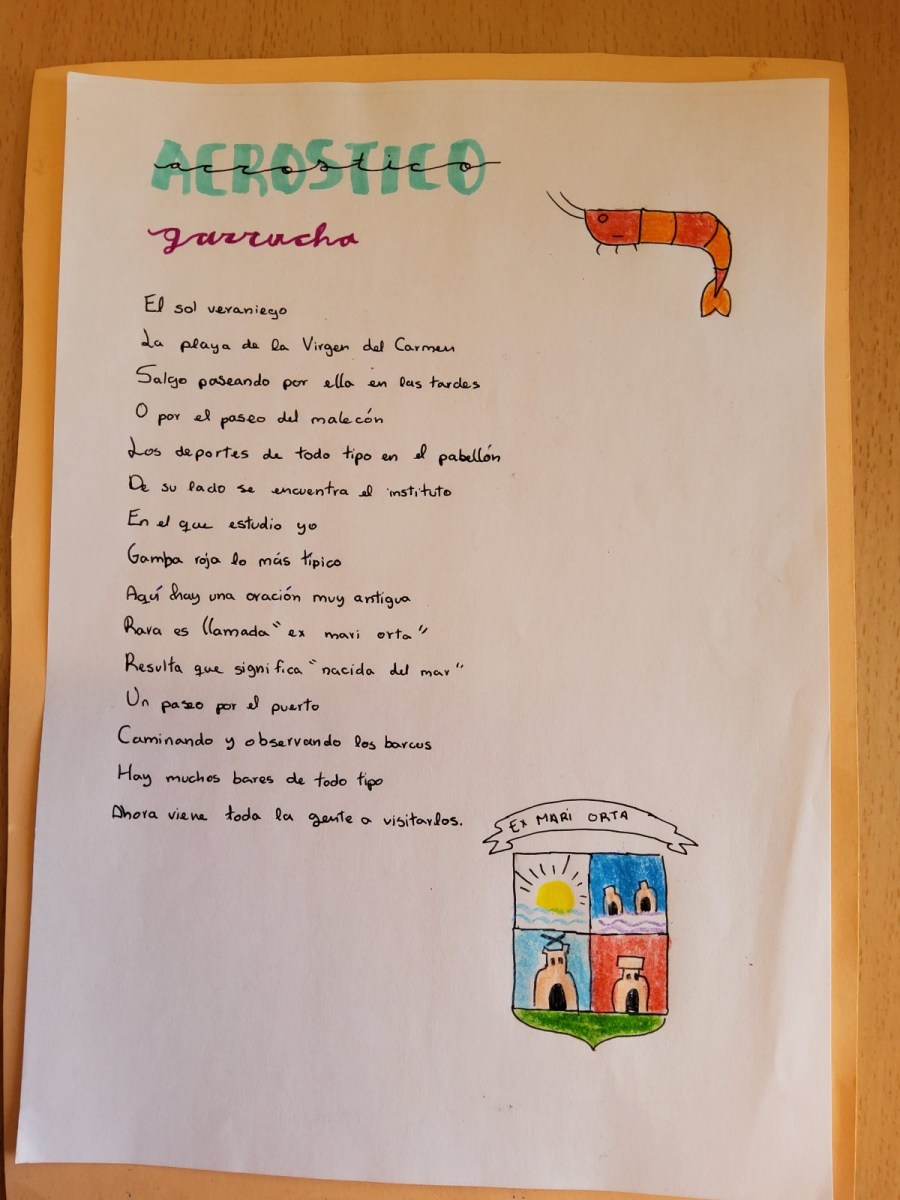 ACROSTICO
acrostico
garrucha
El sol veraniego
La playa de la Virgen del Carmen
Salgo paseando por ella en las tardes
O por el paseo del malecón
Los deportes de todo tipo en el pabellón
De su lado se encuentra el instituto
En el que estudio yo
Gamba roja lo más típico
Aquí hay una oración muy antigua
Rara es llamada "ex mari orta"
Resulta que significa "nacida del mar"
Un paseo por el puerto
Caminando y observando los barcos
Hay muchos bares de todo tipo
Ahora viene toda la gente a visitarlos.
EX MARI ORTA